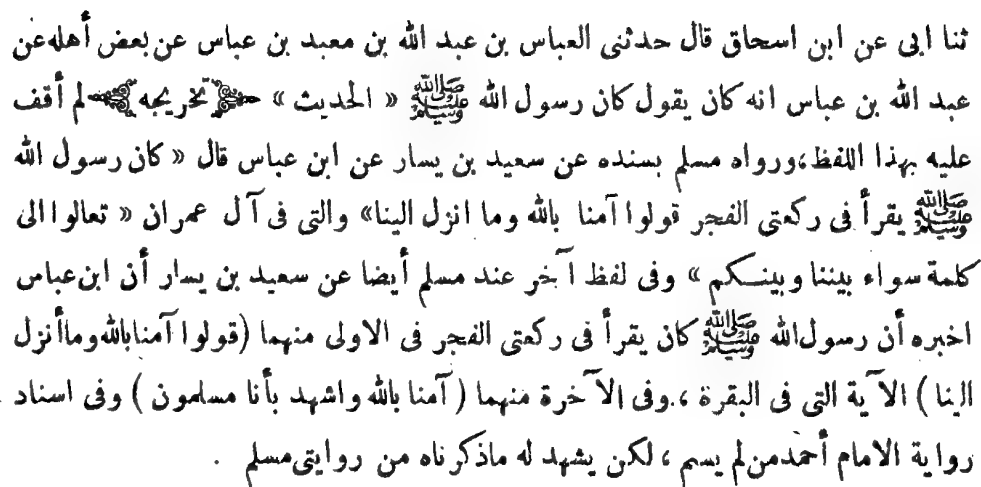 ثنا ابى عن ابن اسحاق قال حدثنى العباس بن عبد الله بن معبد بن عباس عن بعض أهله عن
عبد الله بن عباس انه كان يقول كان رسول الله ﷺ « الحديث » تخريجه لم أقف
عليه بهذا اللفظ ، ورواه مسلم بسنده عن سعيد بن يسار عن ابن عباس قال « كان رسول الله
ﷺ يقرأ فى ركعتى الفجر قولوا آمنا بالله وما انزل الينا» والتى فى آل عمران « تعالوا الى
كلمة سواء بيننا وبينكم » وفى لفظ آخر عند مسلم أيضا عن سعيد بن يسار أن ابن عباس
اخبره أن رسول الله ﷺ كان يقرأ فى ركعتى الفجر فى الاولى منهما (قولوا آمنا بالله وما أنزل
الينا ) الآية التى فى البقرة ، وفى الآخرة منهما ( آمنا بالله واشهد بأنا مسلمون ) وفى اسناد
رواية الامام أحمد من لم يسم ، لكن يشهد له ماذكرناه من روايتى مسلم .